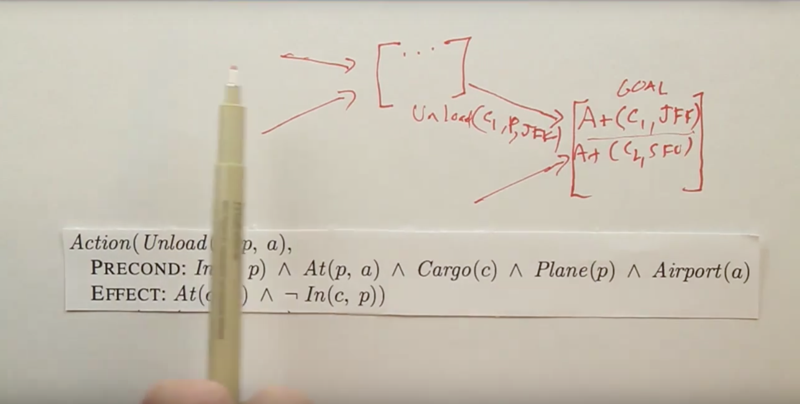 [ . . . ]
GOAL
Unload(C1, P, JFK)
At(C1, JFK)
At(C2, SFO)
Action(Unload p, a),
PRECOND: In p) ∧ At(p, a) ∧ Cargo(c) ∧ Plane(p) ∧ Airport(a)
EFFECT: At( ) ∧ ¬ In(c, p))